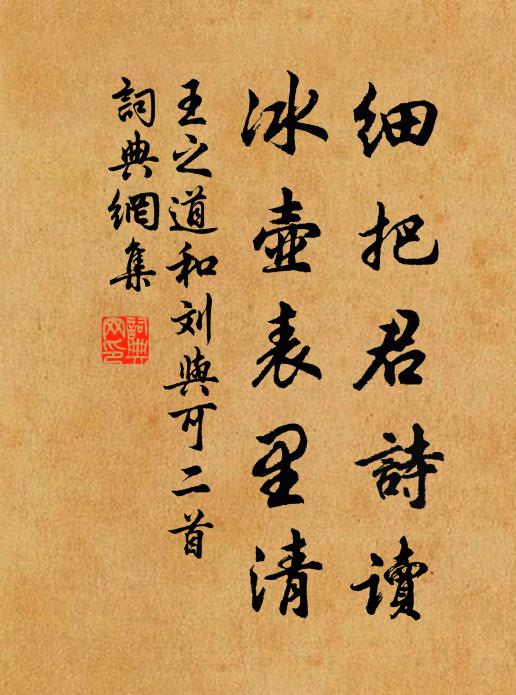 细把君詩读
冰壺表里清
王之道和刘與可二首
詞典網集
詞典
网印